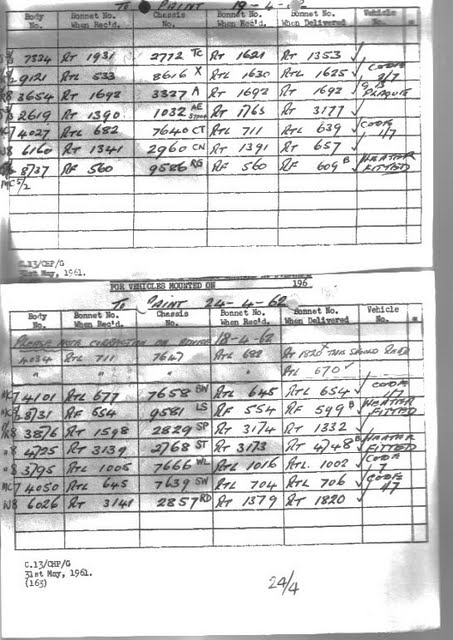 To PAINT 19-4-62
Body No. Bonnet No. When Rec'd. Chassis No. Bonnet No. When Rec'd. Bonnet No. When Delivered Vehicle No.
7324 RT 1931 2772 TC RT 1621 RT 1353 ✓
9121 RTL 533 8616 X RTL 1630 RTL 1625 ✓ CODE 3/7
3654 RT 1692 3327 A RT 1692 RT 1692 ✓ PLAQUE
2619 RT 1390 1032 AE RT 1765 RT 3177 ✓
4027 RTL 682 7640 CT RTL 711 RTL 639 ✓ CODE 1/7
W8 6160 RT 1341 2960 CN RT 1391 RT 657 ✓
8/37 RF 560 9586 RG RF 560 RF 609 B HEATER FITTED
C.13/CHP/G
31st May, 1961.
FOR VEHICLES MOUNTED ON 196
To PAINT 24-4-62
Body No. Bonnet No. When Rec'd. Chassis No. Bonnet No. When Rec'd. Bonnet No. When Delivered Vehicle No.
PLEASE NOTE CORRECTION ON ADVICE 18-4-62
4034 RTL 711 7647 RTL 682 RT 1820 THIS SHOULD READ
" " " " RTL 670 ✓
MC7 4101 RTL 677 7658 SW RTL 645 RTL 654 ✓ CODE
8/31 RF 554 9581 LS RF 554 RF 599 B HEATER FITTED
3876 RT 1598 2829 SP RT 3174 RT 1332 ✓
"8 4725 RT 3139 2768 ST RT 3173 RT 4748 B HEATER FITTED
"5 3/95 RTL 1005 7666 WL RTL 1016 RTL 1002 ✓ CODE 7
MC7 4050 RTL 645 7639 SW RTL 704 RTL 706 ✓ CODE 1/7
W8 6026 RT 3141 2857 RD RT 1379 RT 1820 ✓
C.13/CHP/G
31st May, 1961.
(163)
24/4